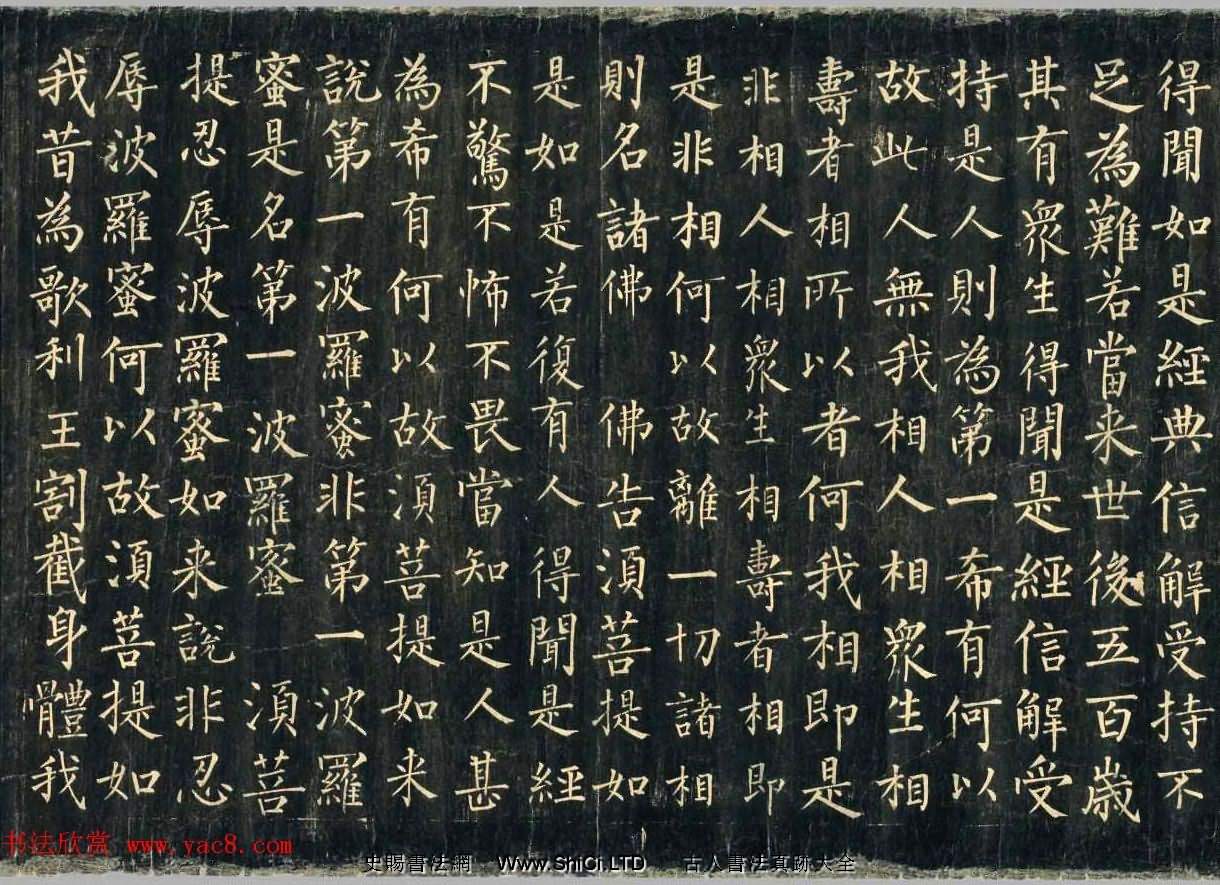 得聞如是經典信解受持不
足為難若當来世後五百歲
其有眾生得聞是經信解受
持是人則為第一希有何以
故此人無我相人相眾生相
壽者相所以者何我相即是
非相人相眾生相壽者相即
是非相何以故離一切諸相
則名諸佛佛告湏菩提如
是如是若復有人得聞是經
不驚不怖不畏當知是人甚
為希有何以故湏菩提如来
說第一波羅蜜非第一波羅
蜜是名第一波羅蜜湏菩
提忍辱波羅蜜如来說非忍
辱波羅蜜何以故湏菩提如
我昔為歌利王割截身體我
书法欣赏 www.yac8.com
史賜書法網 Www.ShiCi.LTD 古人書法真跡大全